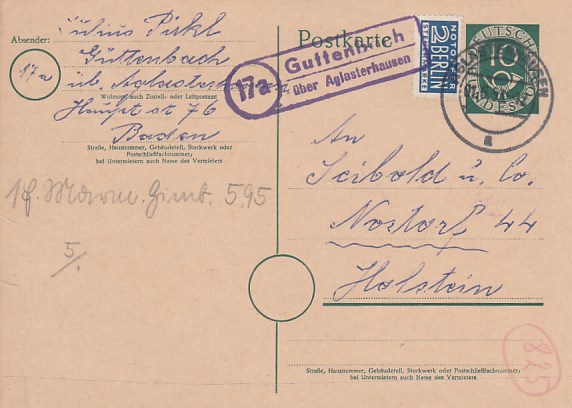 Absender:
Julius Pirkl
Guttenbach
üb Aglasterhausen
17a
Wohnort, auch Zustell- oder Leitpostamt
Hauptstr 76
Baden
Straße, Hausnummer, Gebäudeteil, Stockwerk oder
Postschließfachnummer;
bei Untermietern auch Name des Vermieters
5.95
5/.
Postkarte
17a
Guttenbach
über Aglasterhausen
NOTOPFER
2 BERLIN
STEUERMARKE
DEUTSCHE
10
BUNDESPOST
a
An
Seibold u. Co.
Nostorf 44
Holstein
Straße, Hausnummer, Gebäudeteil, Stockwerk oder Postschließfachnummer;
bei Untermietern auch Name des Vermieters
825